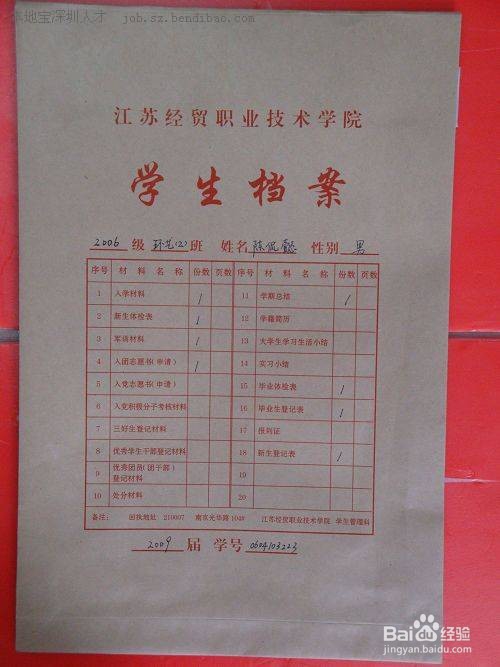 本地宝深圳人才 job.sz.bendibao.com
江苏经贸职业技术学院
学生档案
2006 级 环艺(2) 班 姓名 陈佩懿 性别 男
序号 材料名称 份数 页数 序号 材料名称 份数 页数
1 入学材料 1 11 学期总结 1
2 新生体检表 1 12 学籍简历
3 军训材料 1 13 大学生学习生活小结
4 入团志愿书(申请) 1 14 实习小结
5 入党志愿书(申请) 15 毕业体检表 1
6 入党积极分子考核材料 16 毕业生登记表 1
7 三好生登记材料 17 报到证
8 优秀学生干部登记材料 18 新生登记表 1
9 优秀团员(团干部)登记材料 19
10 处分材料 20
备注: 回执地址 210007 南京光华路104# 江苏经贸职业技术学院 学生管理科
2009 届 学号 0604103223
Bai du 经验
jingyan.baidu.com